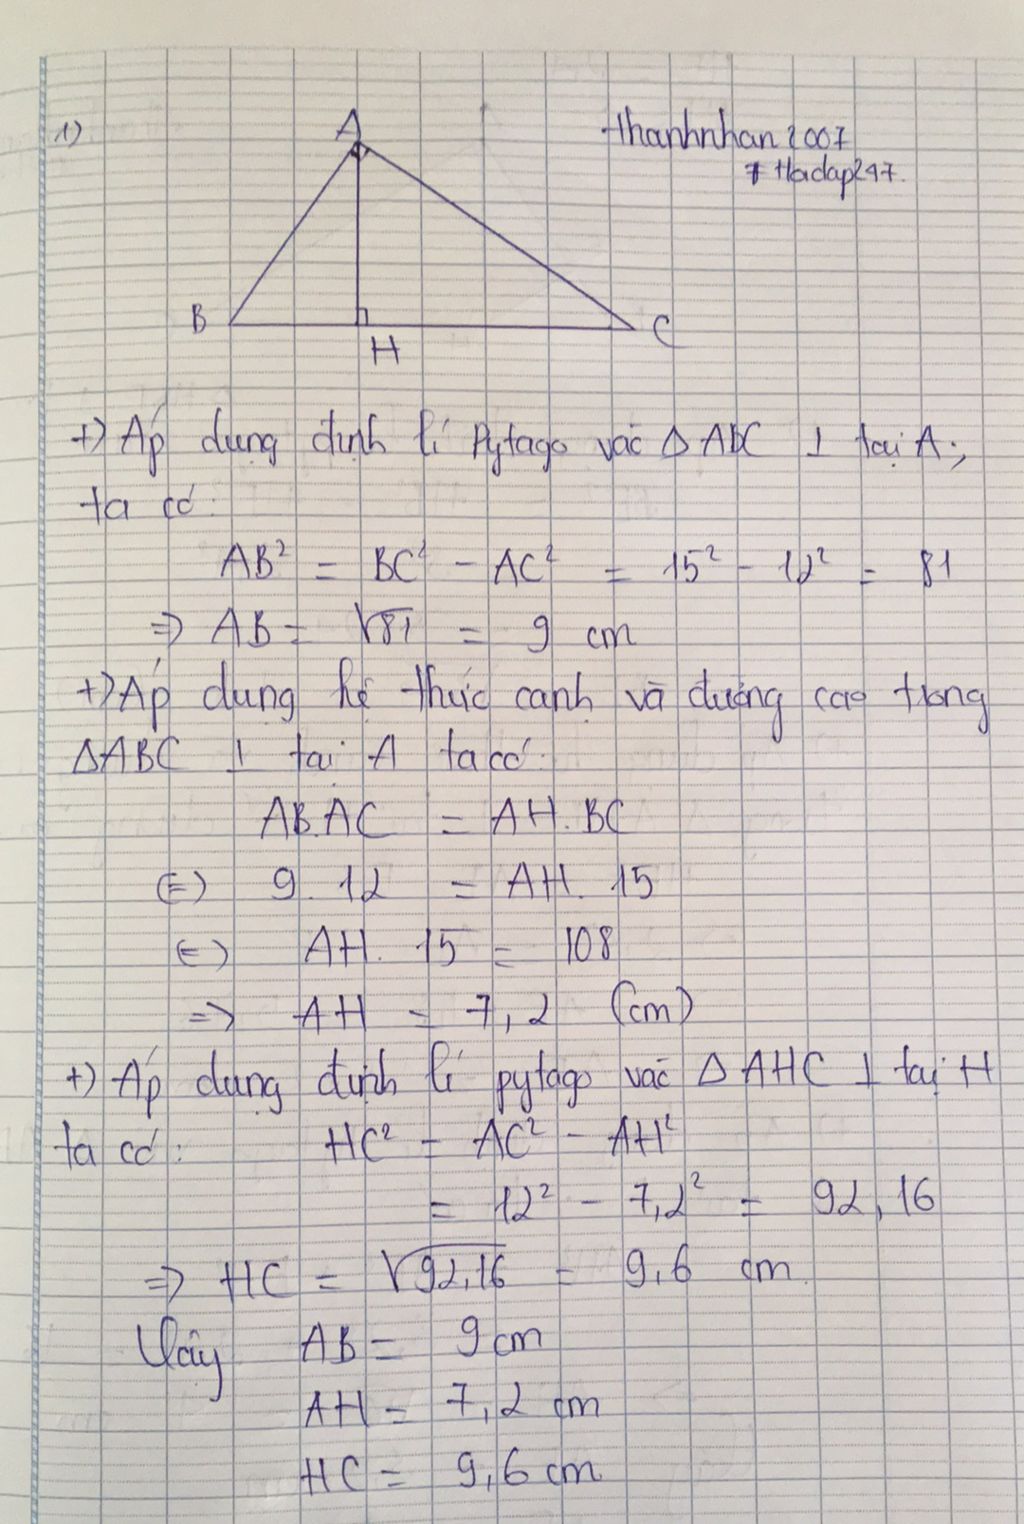 1)
A
thanhnhan2007
Hoidap247.
B
C
H
+) Áp dụng định lí Pytago vào Δ ABC ⊥ tại A;
ta có:
AB² = BC² - AC² = 15² - 12² = 81
=> AB = √81 = 9 cm
+) Áp dụng hệ thức cạnh và đường cao trong
ΔABC ⊥ tại A ta có:
AB.AC = AH.BC
(=) 9.12 = AH.15
(=) AH.15 = 108
=> AH = 7,2 (cm)
+) Áp dụng định lí pytago vào Δ AHC ⊥ tại H
ta có: HC² = AC² - AH²
= 12² - 7,2² = 92,16
=> HC = √92,16 = 9,6 cm.
Vậy AB = 9 cm
AH = 7,2 cm
HC = 9,6 cm